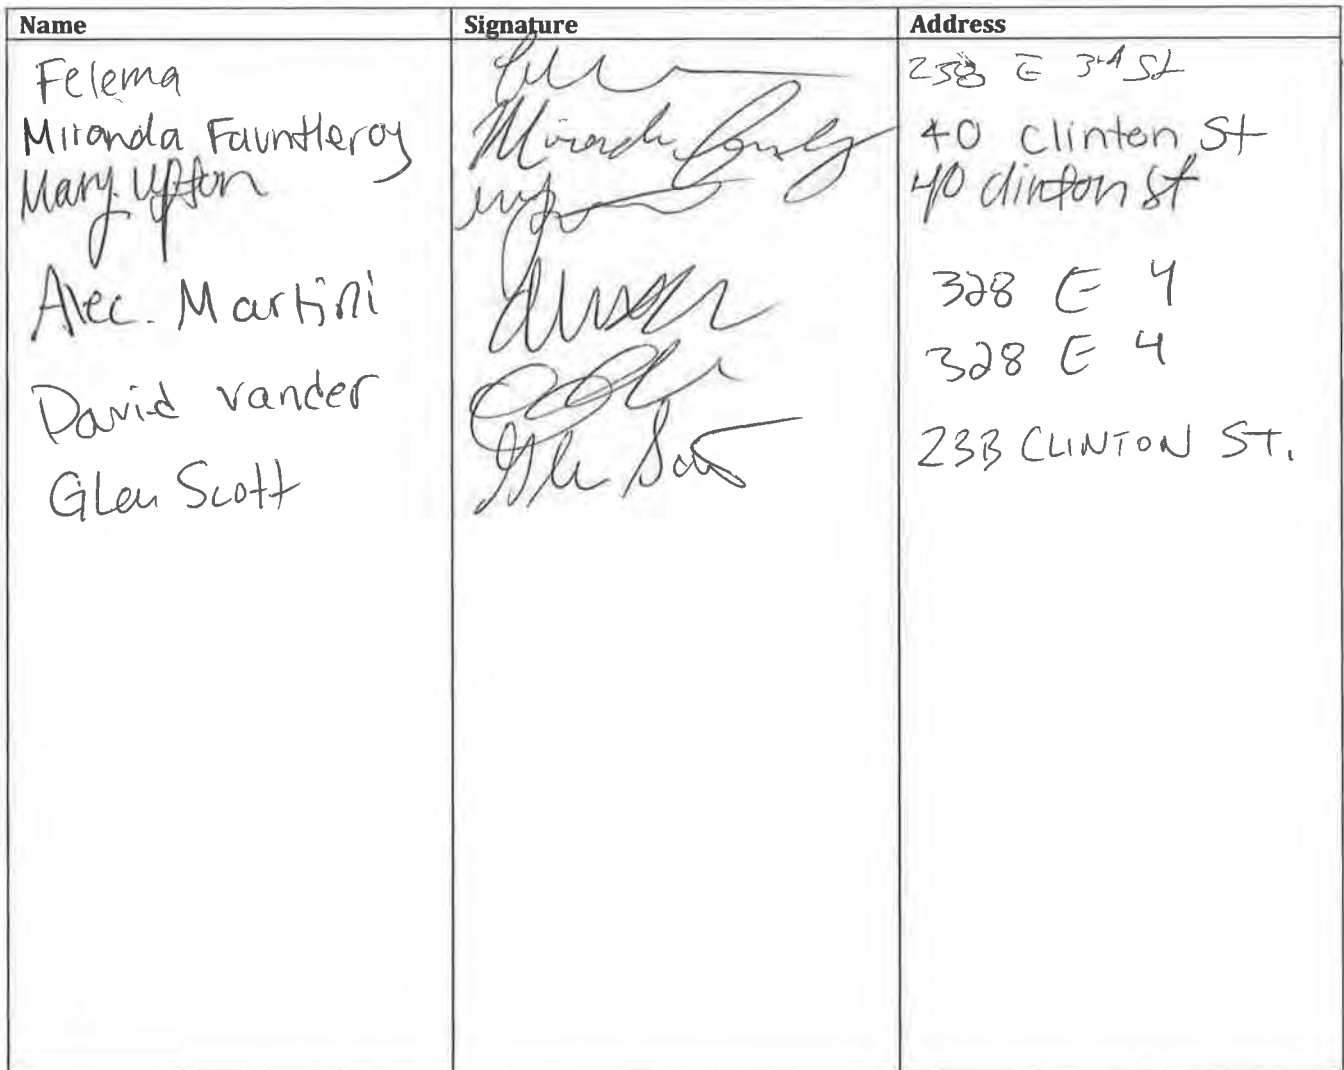 Name Signature Address
Felema 238 E 3rd St
Miranda Fauntleroy Miranda 40 Clinton St
Mary Upton 40 clinton st
Alec. Martini 328 E 4
David vander 328 E 4
Glen Scott 23B CLINTON ST.